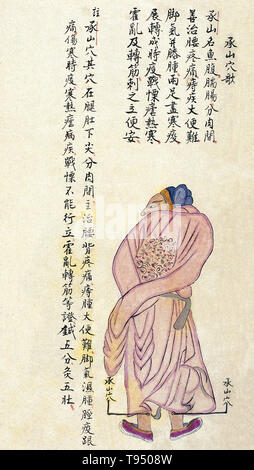 承山穴歌
承山名魚腹腨腸分肉間
善治腰疼痛痔疾大便難
脚氣并膝腫兩足盡寒疫
展轉成時疫戰慄瘧熱寒
霍亂及轉筋刺之立便安
註
承山穴其穴在腿肚下尖分肉間主治腰背疼痛痔腫大便難脚氣濕腫脛疫跟
痛傷寒時疫寒熱瘧痢疾戰慄不能行立霍亂轉筋等證鍼五分灸五壯
承山穴
承山穴
alamy
Image ID: T9508W
www.alamy.com